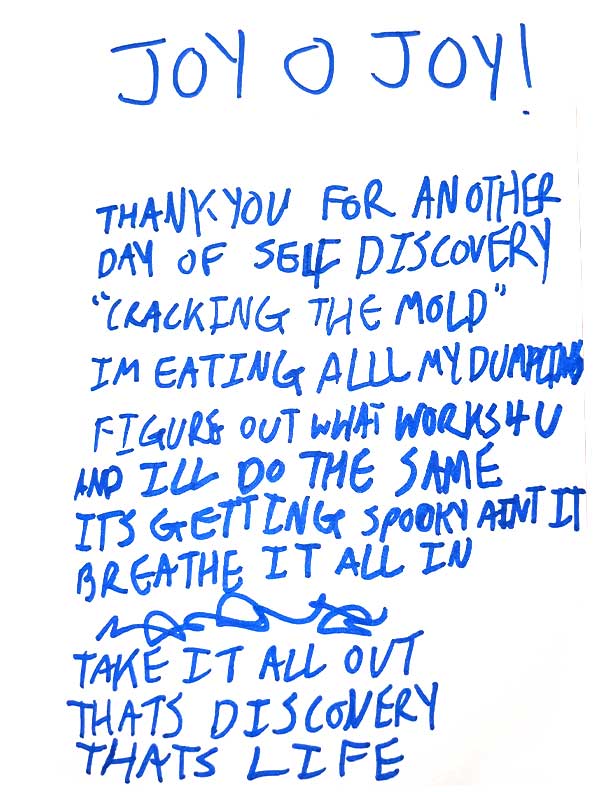 JOY O JOY!
THANK YOU FOR ANOTHER
DAY OF SELF DISCOVERY
"CRACKING THE MOLD"
IM EATING ALLL MY DUMPLINGS
FIGURE OUT WHAT WORKS 4 U
AND ILL DO THE SAME
ITS GETTING SPOOKY AINT IT
BREATHE IT ALL IN
TAKE IT ALL OUT
THATS DISCOVERY
THATS LIFE